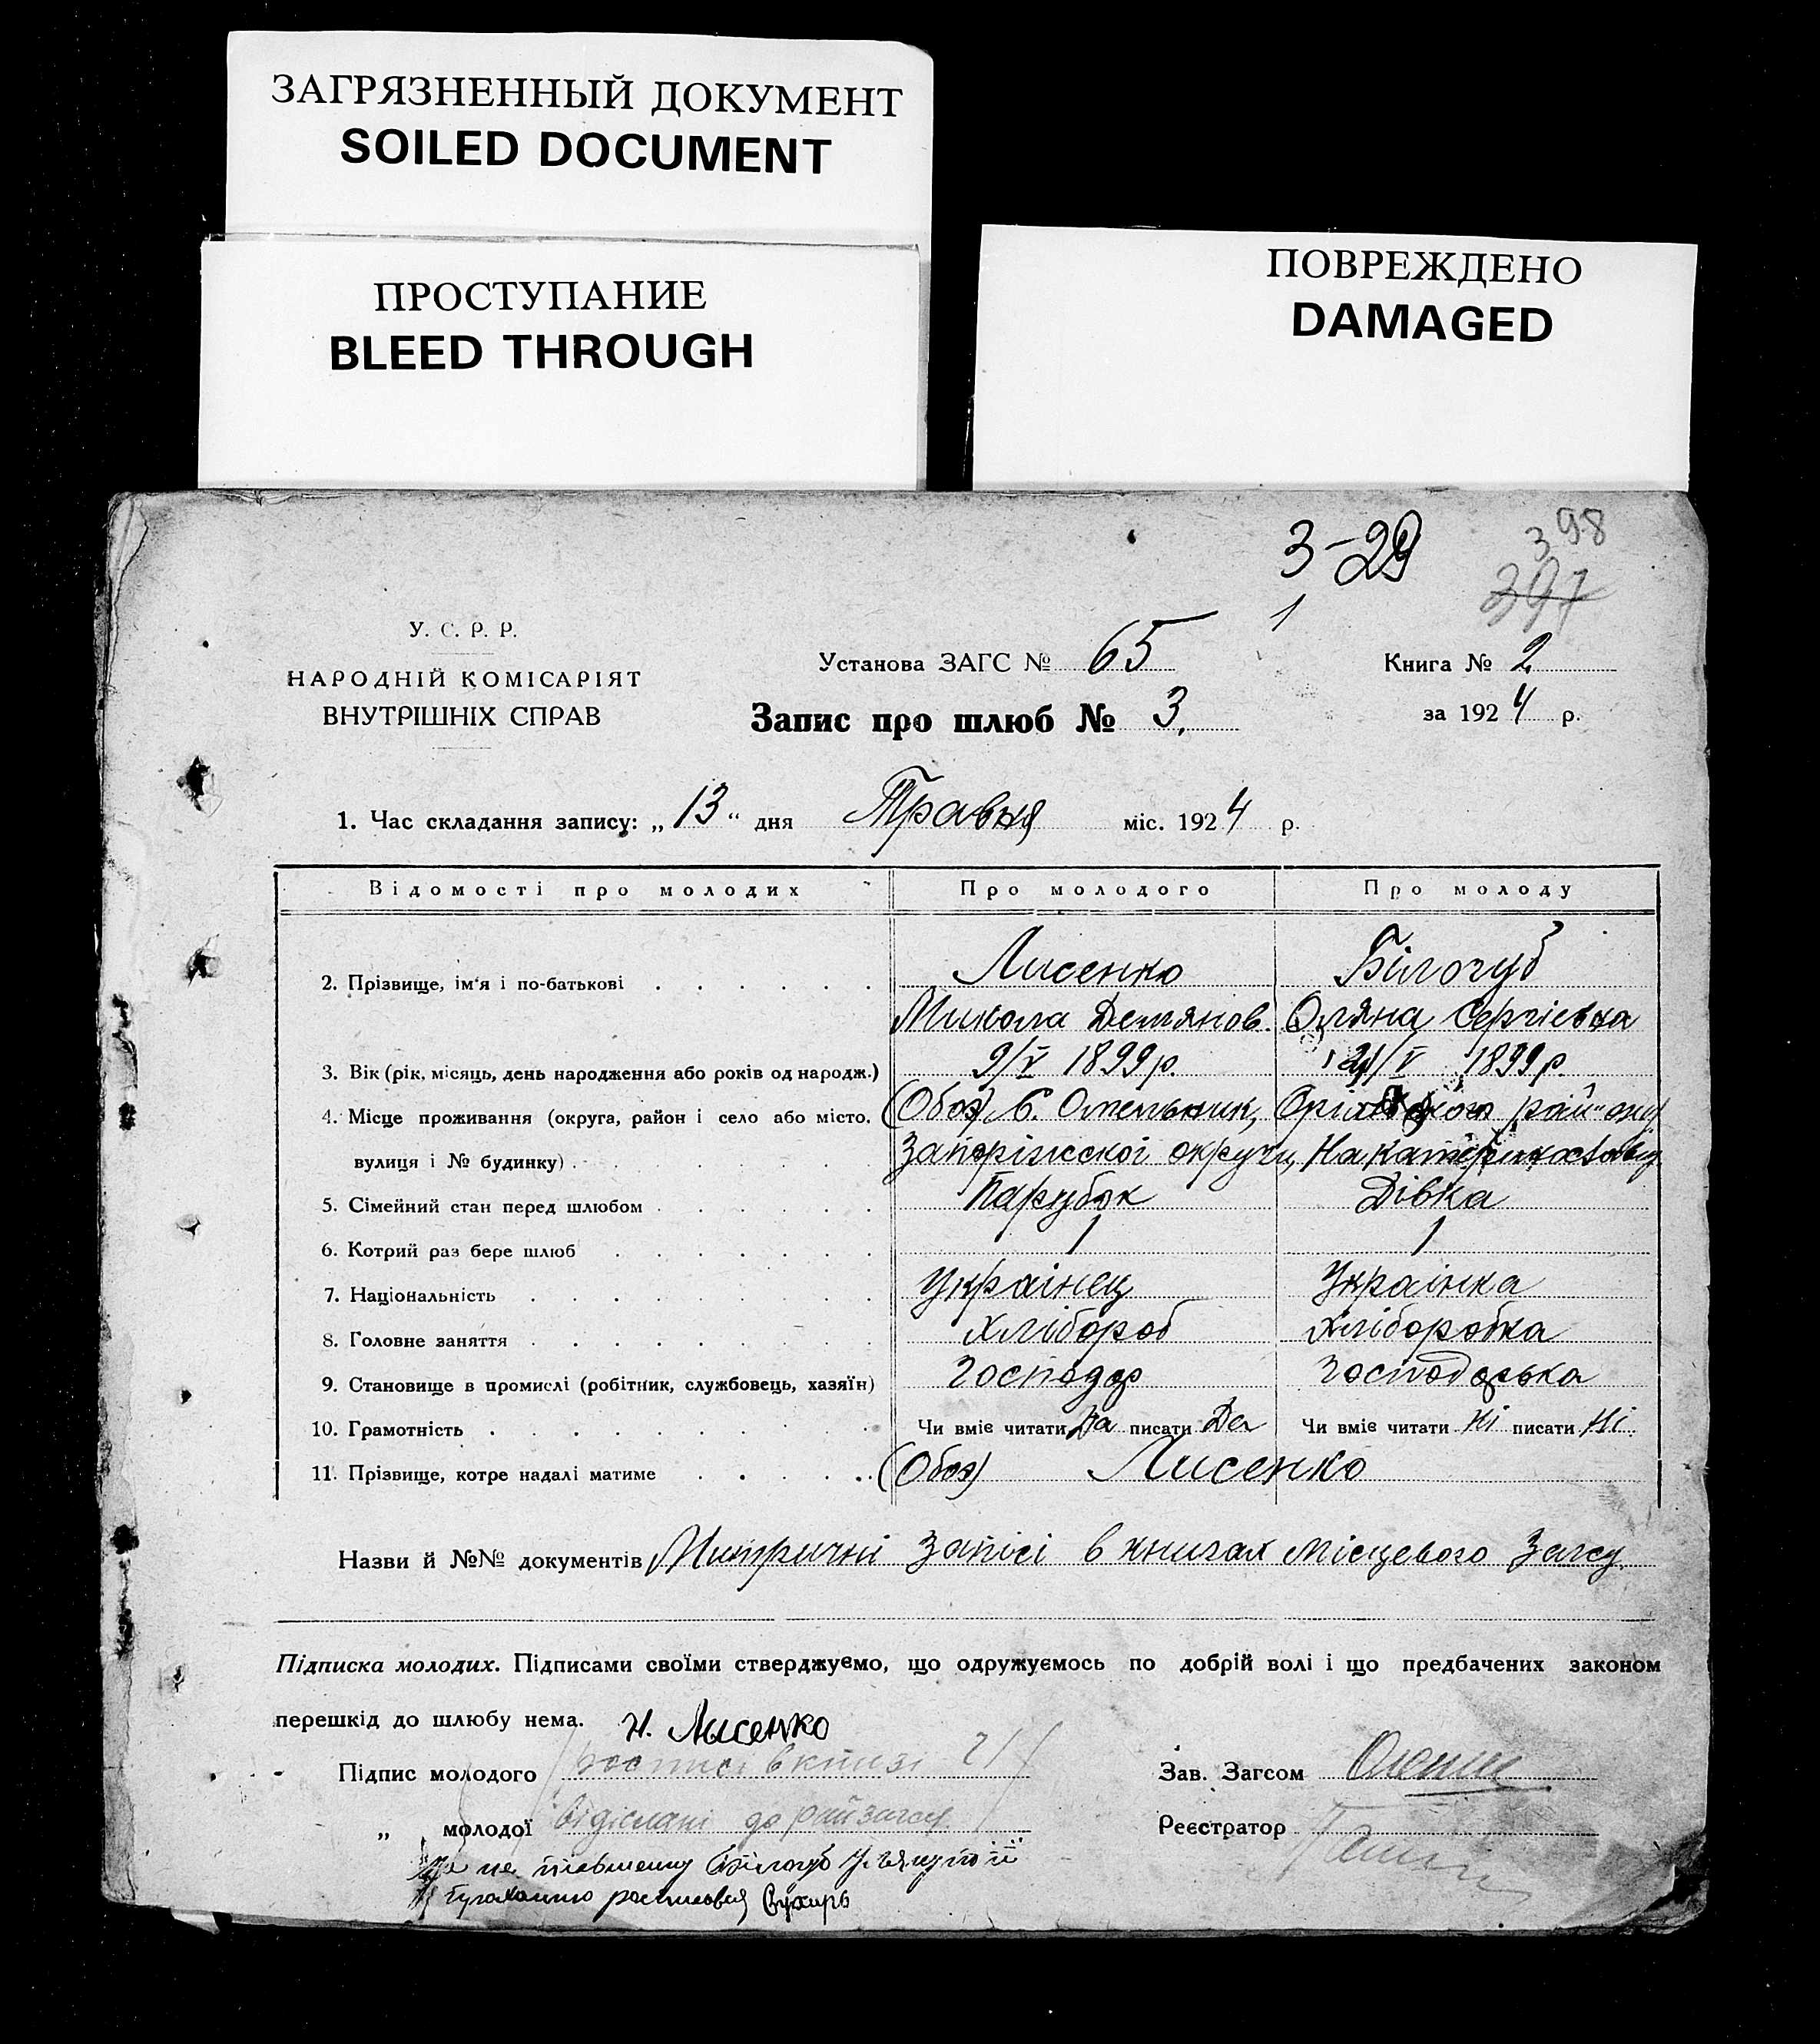 ЗАГРЯЗНЕННЫЙ ДОКУМЕНТ
SOILED DOCUMENT
ПРОСТУПАНИЕ
BLEED THROUGH
ПОВРЕЖДЕНО
DAMAGED
3-29
398
397
1
У. С. Р. Р.
НАРОДНІЙ КОМІСАРІЯТ
ВНУТРІШНІХ СПРАВ
Установа ЗАГС № 65
Запис про шлюб № 3.
Книга № 2
за 1924 р.
1. Час складання запису: „13“ дня Травня міс. 1924 р.
Відомості про молодих Про молодого Про молоду
2. Прізвище, ім'я і по-батькові Лисенко Білогуб
Микола Демянов. Оляна Сергієвна
3. Вік (рік, місяць, день народження або років од народж.) 9/V 1899 р. 21/V 1899 р.
4. Місце проживання (округа, район і село або місто, (Обоє) С. Омельник, району
вулиця і № будинку) Запоріжської округи, на
5. Сімейний стан перед шлюбом Парубок Дівка
6. Котрий раз бере шлюб 1 1
7. Національність Українец Українка
8. Головне заняття Хлібороб Хліборобка
9. Становище в промислі (робітник, службовець, хазяїн) Господар Господарька
10. Грамотність Чи вміє читати Да писати Да Чи вміє читати Ні писати Ні
11. Прізвище, котре надалі матиме (Обоє) Лисенко
Назви й №№ документів Митричні записі в книгах місцевого Загсу.
Підписка молодих. Підписами своїми стверджуємо, що одружуємось по добрій волі і що предбачених законом
перешкід до шлюбу нема. Н. Лысенко
Підпис молодого росписі в книзі
Зав. Загсом
„ молодої відіслані до райзагсу
Реєстратор
не Білогуб її
росписовся